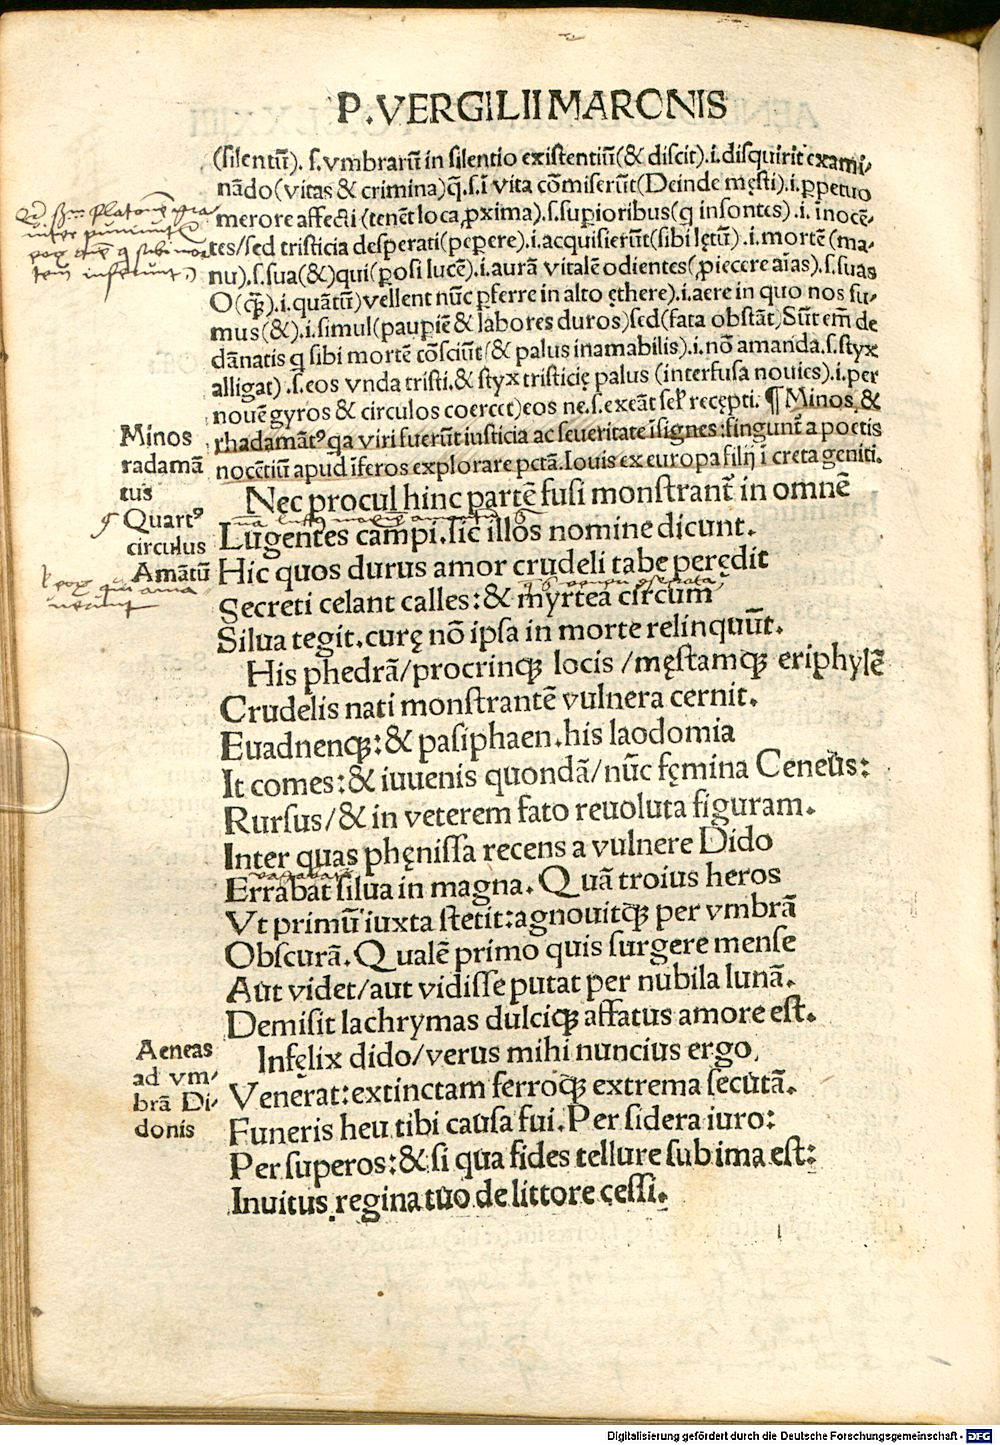 P.VERGILII MARONIS
(silentũ). s̃.vmbrarũ in silentio existentiũ(& discit).i.disquirit exami-
nãdo(vitas & crimina)q̃.s.ĩ vita cõmiserũt(Deinde męsti).i.ꝑpetuo
merore affecti(tenẽt loca ꝓxima).s.supioribus(q insontes).i.inocẽ-
tes/sed tristicia desperati(pepere).i.acquisierũt(sibi lętũ).i.mortẽ(ma-
nu).s.sua(&)qui(ꝑosi lucẽ).i.aurã vitalẽ odientes(ꝓiecere aĩas).s.suas
O(q̃ꝫ).i.quãtũ)vellent nũc ꝑferre in alto ęthere).i.aere in quo nos su-
mus(&).i.simul(paupiẽ & labores duros)sed(fata obstãt)Sũt em̃ de
dãnatis q sibi mortẽ cõsciũt(& palus inamabilis).i.nõ amanda.s.styx
alligat).s.eos vnda tristi.& styx tristicię palus (interfusa nouies).i.per
nouẽ gyros & circulos coercet)eos ne.s.exeãt seł recępti. ¶ Minos,&
rhadamãtꝰ qa viri fuerũt iusticia ac seueritate ĩsignes:fingunt̃ a poetis
nocẽtiũ apud ĩferos explorare pctã.Iouis ex europa filij ĩ creta geniti.
Minos
radamã
tus
Nec procul hinc partẽ fusi monstrant̃ in omnẽ
Quartꝰ
circulus
Lugentes campi.sic illos nomine dicunt.
Amãtũ
Hic quos durus amor crudeli tabe perędit
Secreti celant calles:& myrtea circum
Silua tegit.curę nõ ipsa in morte relinquũt.
His phedrã/procrinqꝫ locis /męstamqꝫ eriphylẽ
Crudelis nati monstrantẽ vulnera cernit.
Euadnenqꝫ:& pasiphaen.his laodomia
It comes:& iuuenis quondã/nũc fęmina Ceneus:
Rursus/& in veterem fato reuoluta figuram.
Inter quas phęnissa recens a vulnere Dido
Errabat silua in magna.Quã troius heros
Vt primũ iuxta stetit:agnouitqꝫ per vmbrã
Obscurã.Qualẽ primo quis surgere mense
Aut videt/aut vidisse putat per nubila lunã.
Demisit lachrymas dulciqꝫ affatus amore est.
Aeneas
ad vm-
brã Di-
donis
Infęlix dido/verus mihi nuncius ergo
Venerat:extinctam ferroqꝫ extrema secutã.
Funeris heu tibi causa fui.Per sidera iuro:
Per superos:& si qua fides tellure sub ima est:
Inuitus regina tuo de littore cessi.
Digitalisierung gefördert durch die Deutsche Forschungsgemeinschaft - DFG